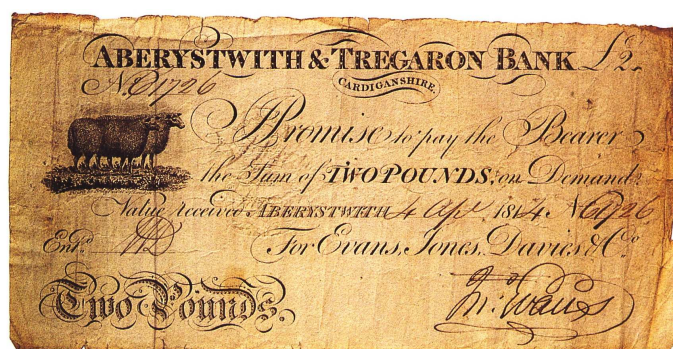 ABERYSTWITH & TREGARON BANK £2
CARDIGANSHIRE.
No. C1726
I Promise to pay the Bearer
the Sum of TWO POUNDS, on Demand.
Value received. ABERYSTWITH 4 Apl. 1814 No C1726
Entd.
For Evans, Jones, Davies & Co.
Two Pounds.
Evans